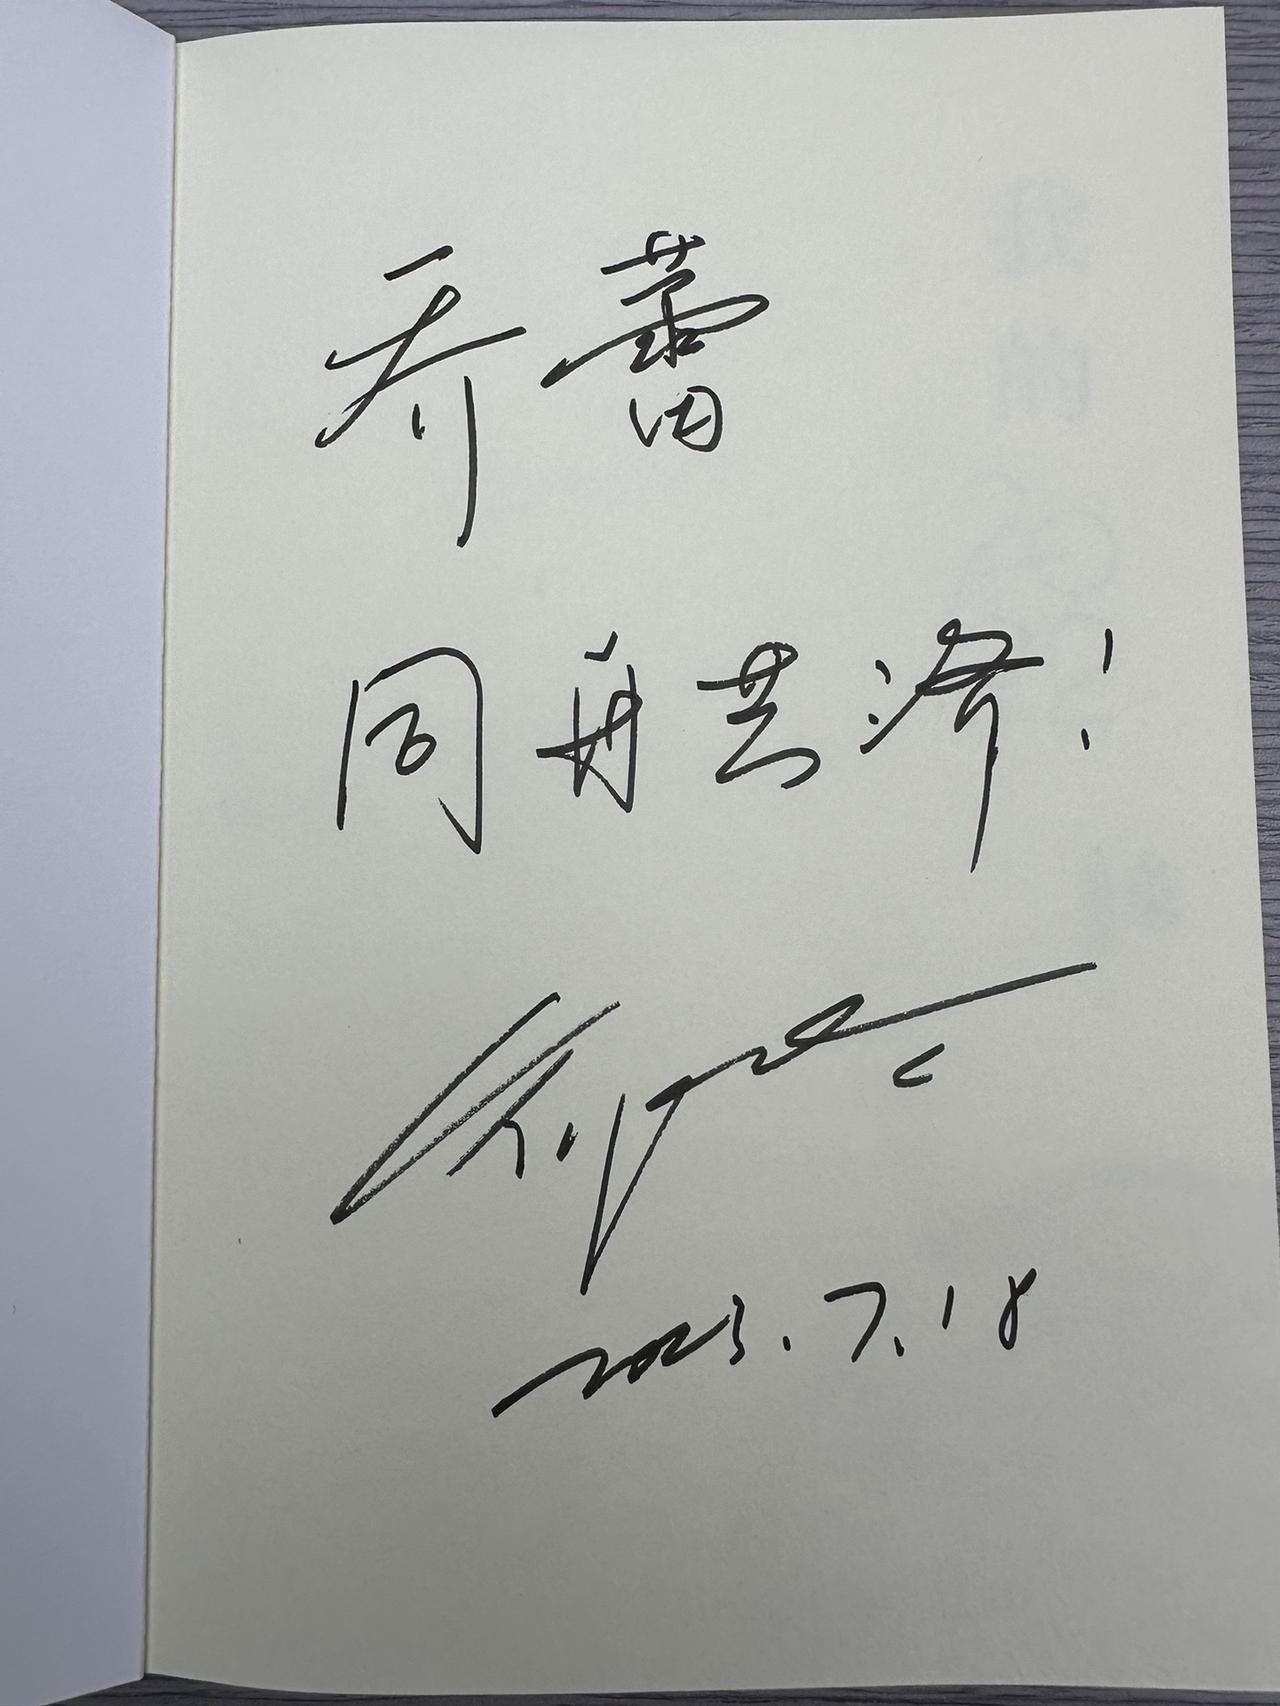 乔蕾
同舟共济!
2023.7.18